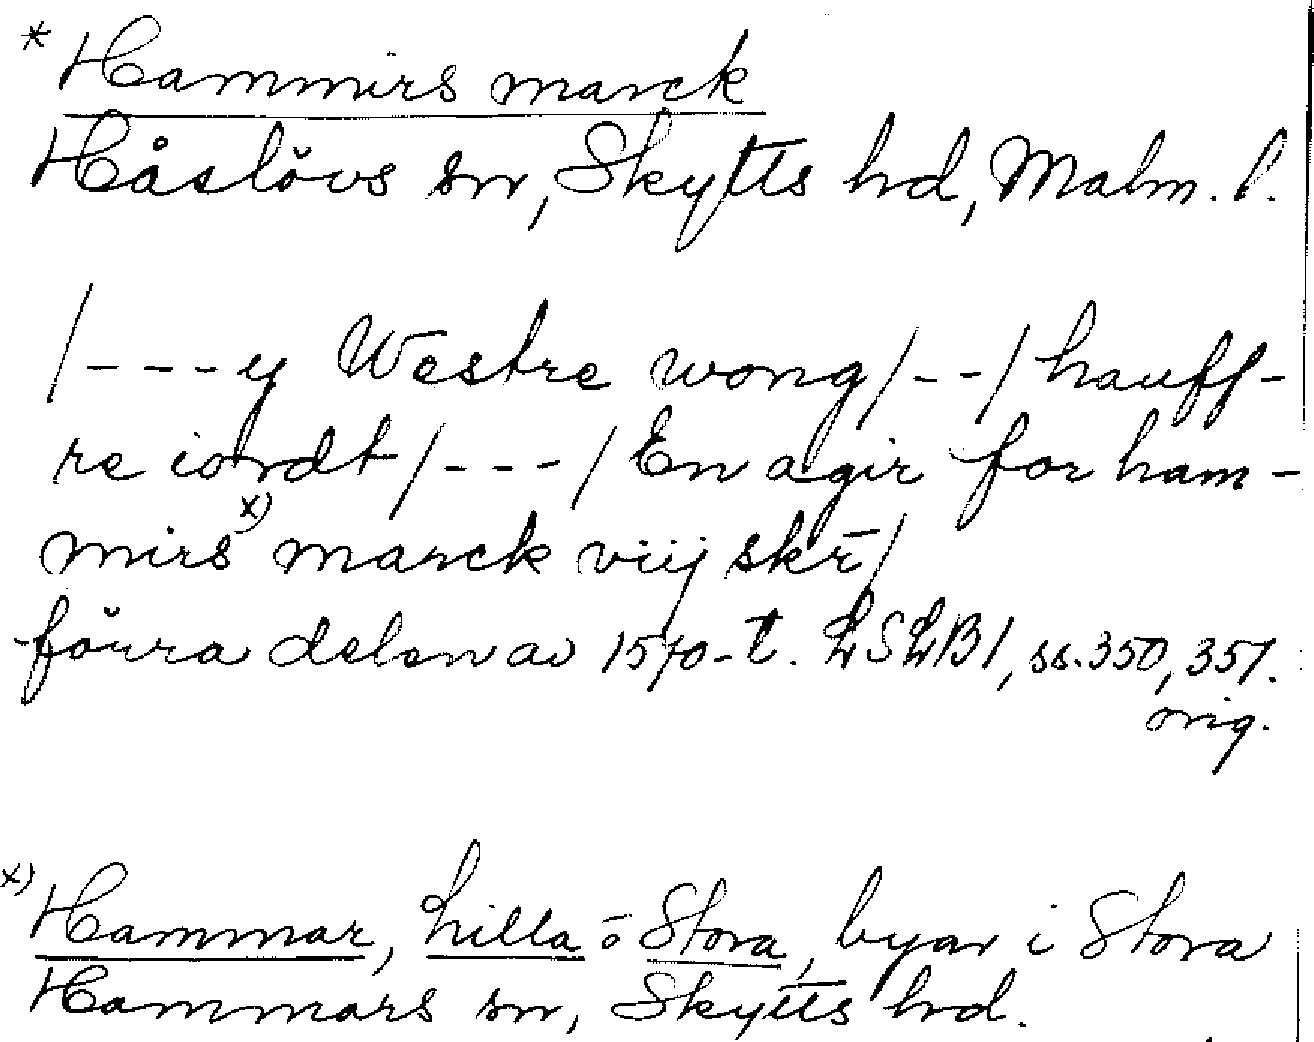 * Hammirs marck
Håslövs sn, Skytts hd, Malm. l.
/----y Westre wong/--/hauff-
re iordt/---/En agir for ham-
mirs x) marck viij skr̄/
förra delen av 1570-t. LSLB1, ss. 350, 357.
orig.
x) Hammar, Lilla o Stora, byar i Stora
Hammars sn, Skytts hd.